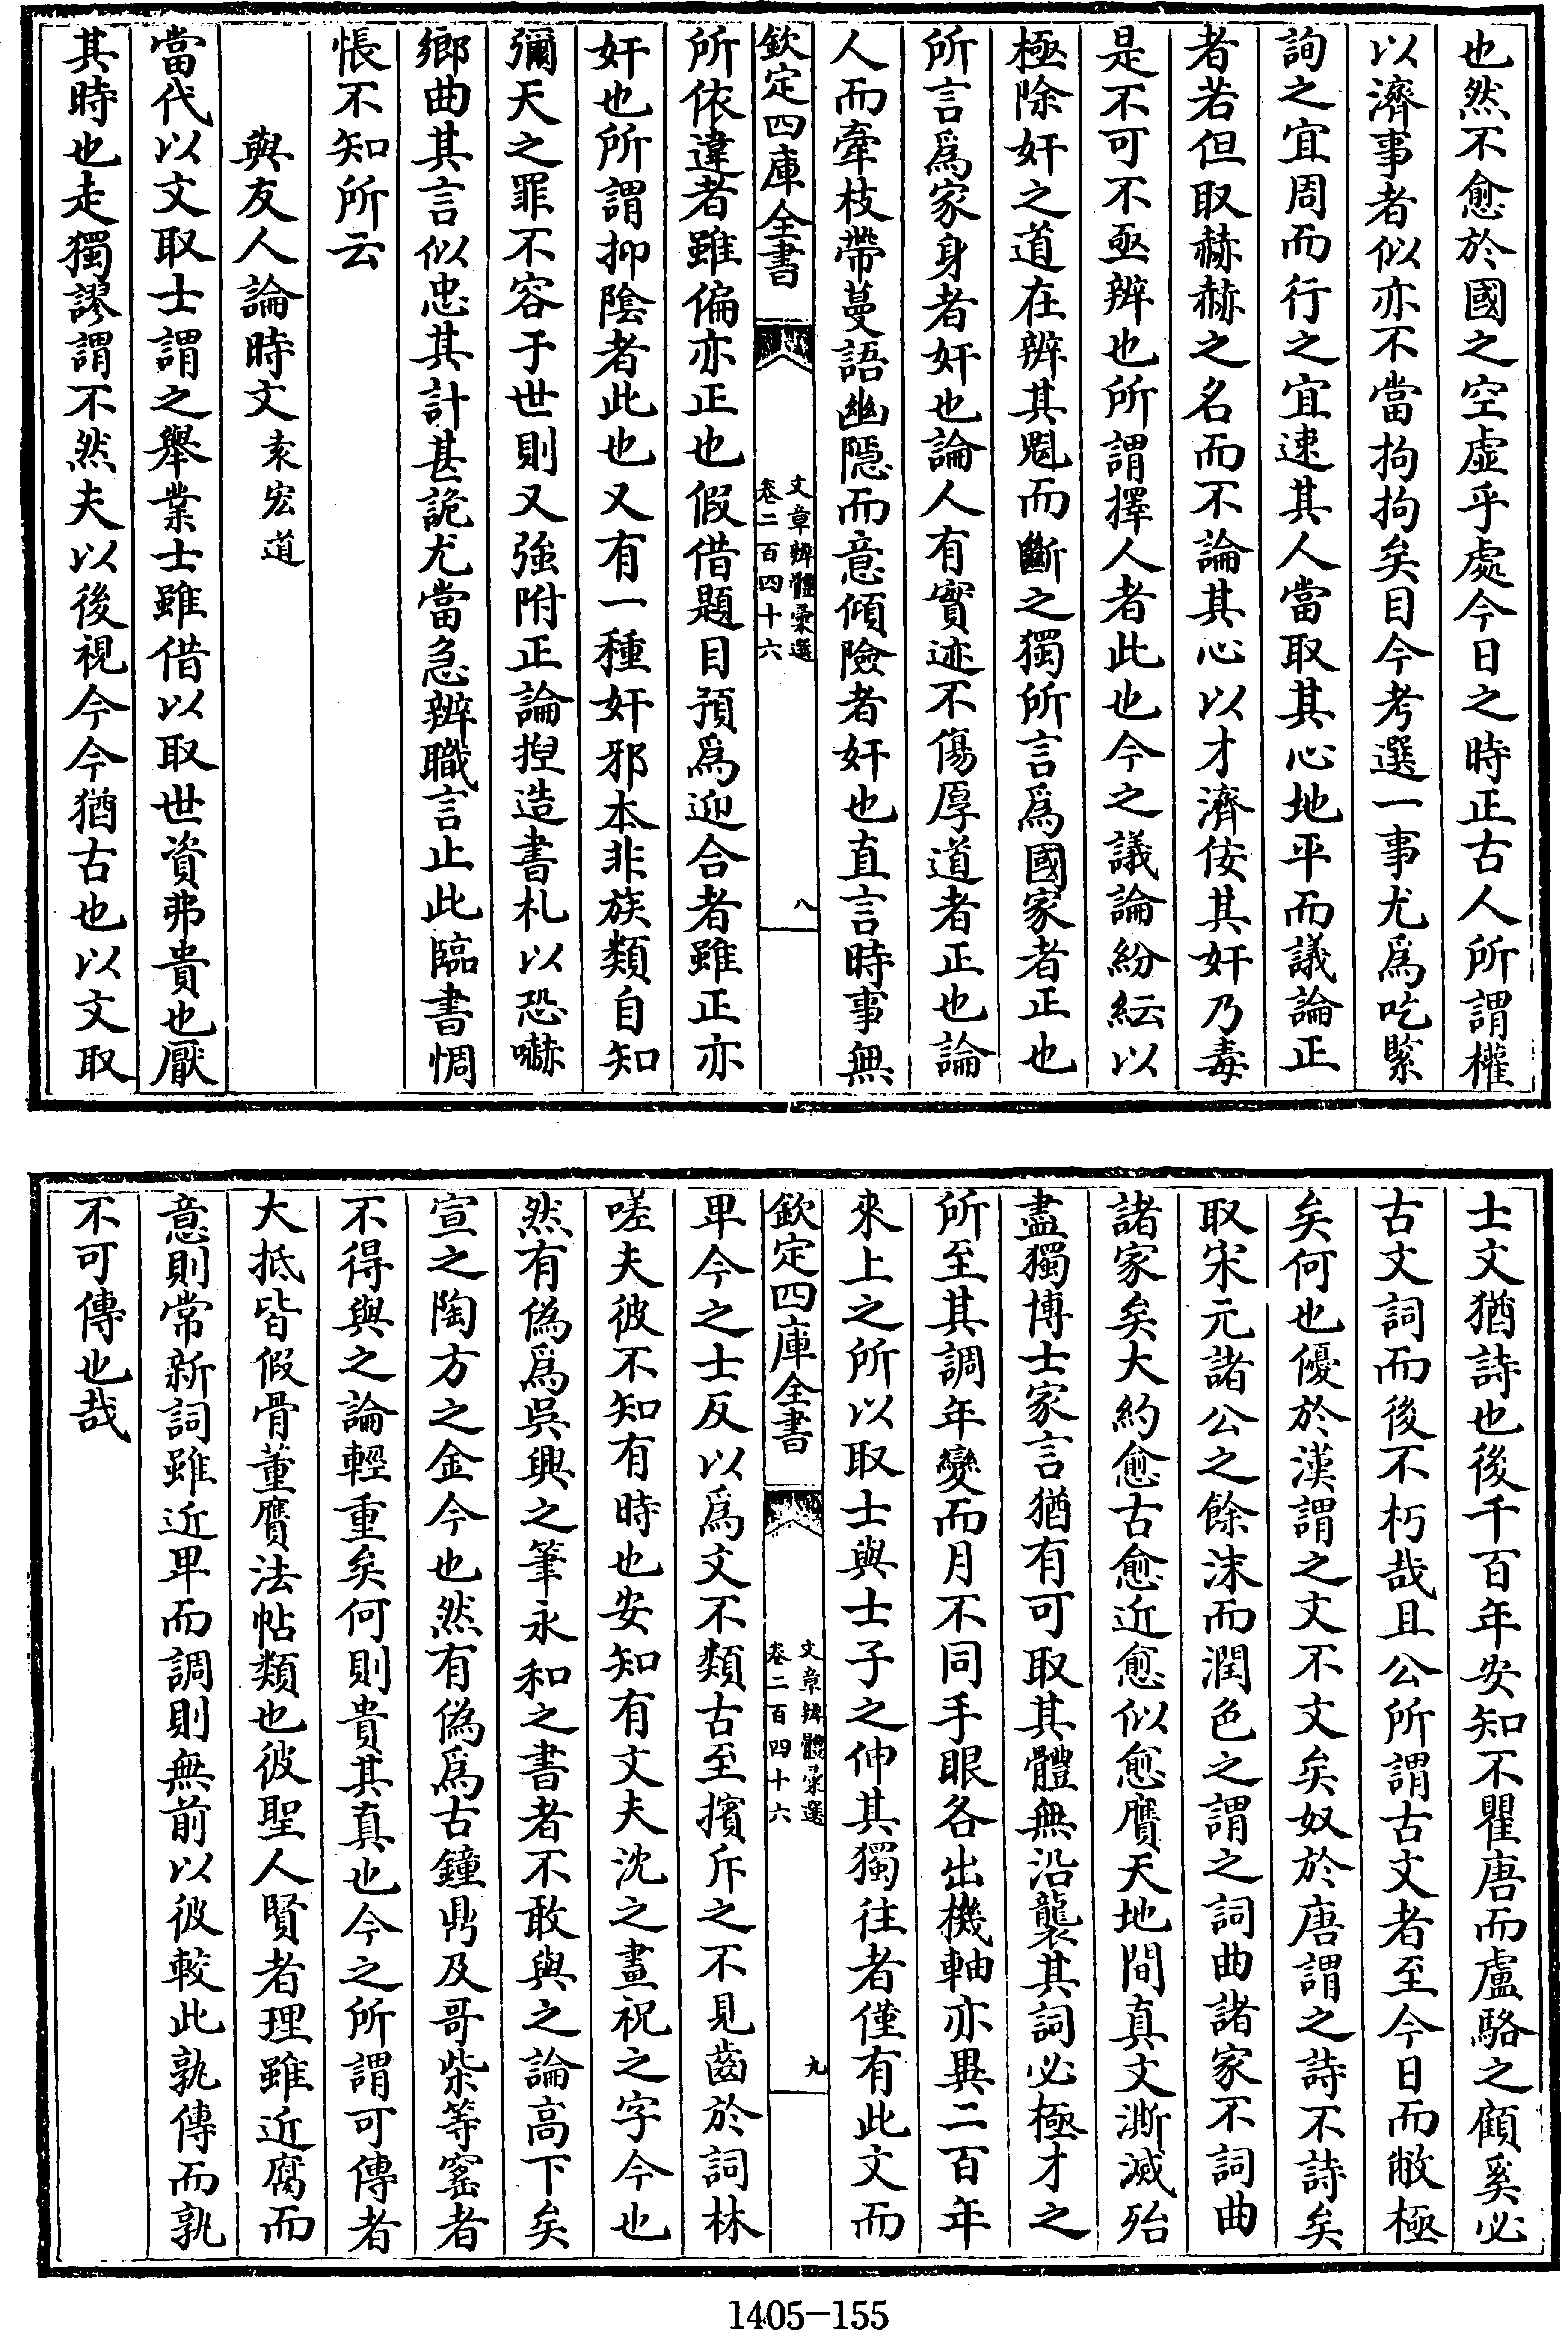 也然不愈於國之空虛乎處今日之時正古人所謂權
以濟事者似亦不當拘拘矣目今考選一事尤爲吃緊
詢之宜周而行之宜速其人當取其心地平而議論正
者若但取赫赫之名而不論其心以才濟侫其奸乃毒
是不可不亟辨也所謂擇人者此也今之議論紛紜以
極除奸之道在辨其魁而斷之獨所言爲國家者正也
所言爲家身者奸也論人有實迹不傷厚道者正也論
人而牽枝帶蔓語幽隱而意傾險者奸也直言時事無
欽定四庫全書
文章辨體彙選
卷二百四十六
八
所依違者雖偏亦正也假借題目預爲迎合者雖正亦
奸也所謂抑陰者此也又有一種奸邪本非族類自知
彌天之罪不容于世則又強附正論揑造書札以恐嚇
鄉曲其言似忠其計甚詭尤當急辨職言止此臨書惆
悵不知所云
與友人論時文袁宏道
當代以文取士謂之舉業士雖借以取世資弗貴也厭
其時也走獨謬謂不然夫以後視今今猶古也以文取
士文猶詩也後千百年安知不瞿唐而盧駱之顧奚必
古文詞而後不朽哉且公所謂古文者至今日而敝極
矣何也優於漢謂之文不文矣奴於唐謂之詩不詩矣
取宋元諸公之餘沫而潤色之謂之詞曲諸家不詞曲
諸家矣大約愈古愈近愈似愈贗天地間真文澌滅殆
盡獨博士家言猶有可取其體無沿襲其詞必極才之
所至其調年變而月不同手眼各出機軸亦異二百年
來上之所以取士與士子之伸其獨往者僅有此文而
欽定四庫全書
文章辨體彙選
卷二百四十六
九
卑今之士反以爲文不類古至擯斥之不見齒於詞林
嗟夫彼不知有時也安知有文夫沈之畫祝之字今也
然有偽爲吳興之筆永和之書者不敢與之論高下矣
宣之陶方之金今也然有偽爲古鐘鼎及哥柴等窰者
不得與之論輕重矣何則貴其真也今之所謂可傳者
大抵皆假骨董贗法帖類也彼聖人賢者理雖近腐而
意則常新詞雖近卑而調則無前以彼較此孰傳而孰
不可傳也哉
1405-155